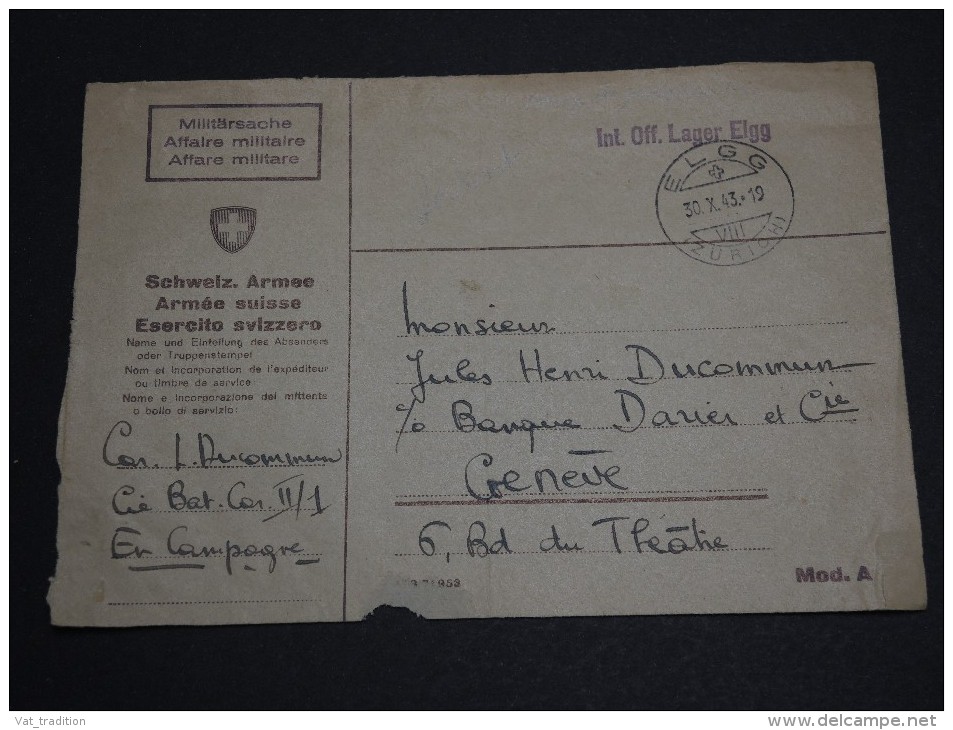 Militärsache
Affaire militaire
Affare militare
Schweiz. Armee
Armée suisse
Esercito svizzero
Name und Einteilung des Absenders
oder Truppenstempel
Nom et incorporation de l'expéditeur
ou timbre de service
Nome e incorporazione del mittente
o bollo di servizio:
Car. L. Ducommun
Cie Bat. Car. II/1
En Campagne
Int. Off. Lager Elgg
ELGG
30. X. 43. 19
VIII
(ZÜRICH)
Monsieur
Jules Henri Ducommun
c/o Banque Darier et Cie
Genève
6, Bd du Théâtre
71953
Mod. A
Vat_tradition
www.delcampe.net